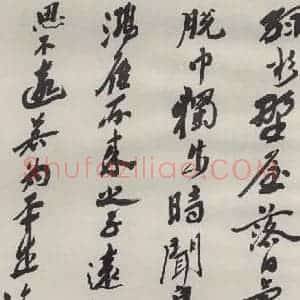 綠杉壄屋落日
脫巾獨步時聞
鴻雁不來之子遠
思不遠若為平生
Shufaziliao.COM